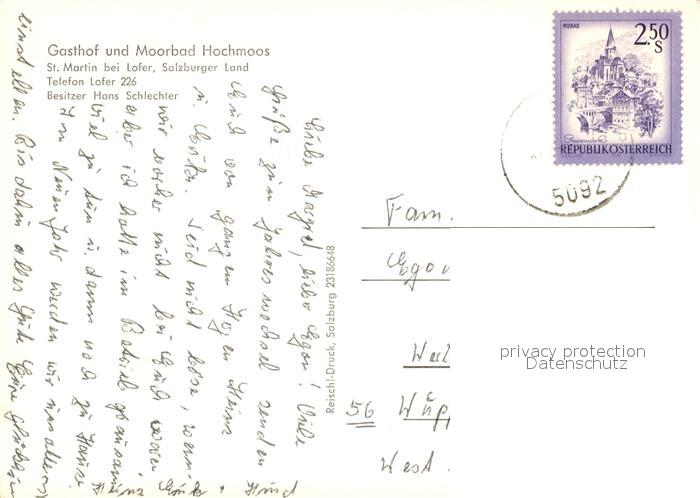 Gasthof und Moorbad Hochmoos
St. Martin bei Lofer, Salzburger Land
Telefon Lofer 226
Besitzer Hans Schlechter
MURAU
2.50
S
REPUBLIK ÖSTERREICH
5092
Liebe Margret, lieber Egon! Viele
Grüße zum Jahreswechsel senden
Euch von ganzem Herzen Heinz
u. Seid nicht böse, wenn
wir vorher nicht bei Euch waren
aber ich hatte im Betrieb grausam
viel zu tun u. dann noch zu Hause
Im Neuen Jahr werden wir uns aber
einst Bis dahin alles Gute
Heinz + Hund
Reischl-Druck, Salzburg 23186648
Fam.
Egon
56 Wup
West
privacy protection
Datenschutz